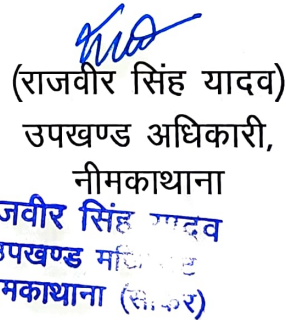 (राजवीर सिंह यादव)
उपखण्ड अधिकारी,
नीमकाथाना
जवीर सिंह यादव
उपखण्ड
मकाथाना (सीकर)